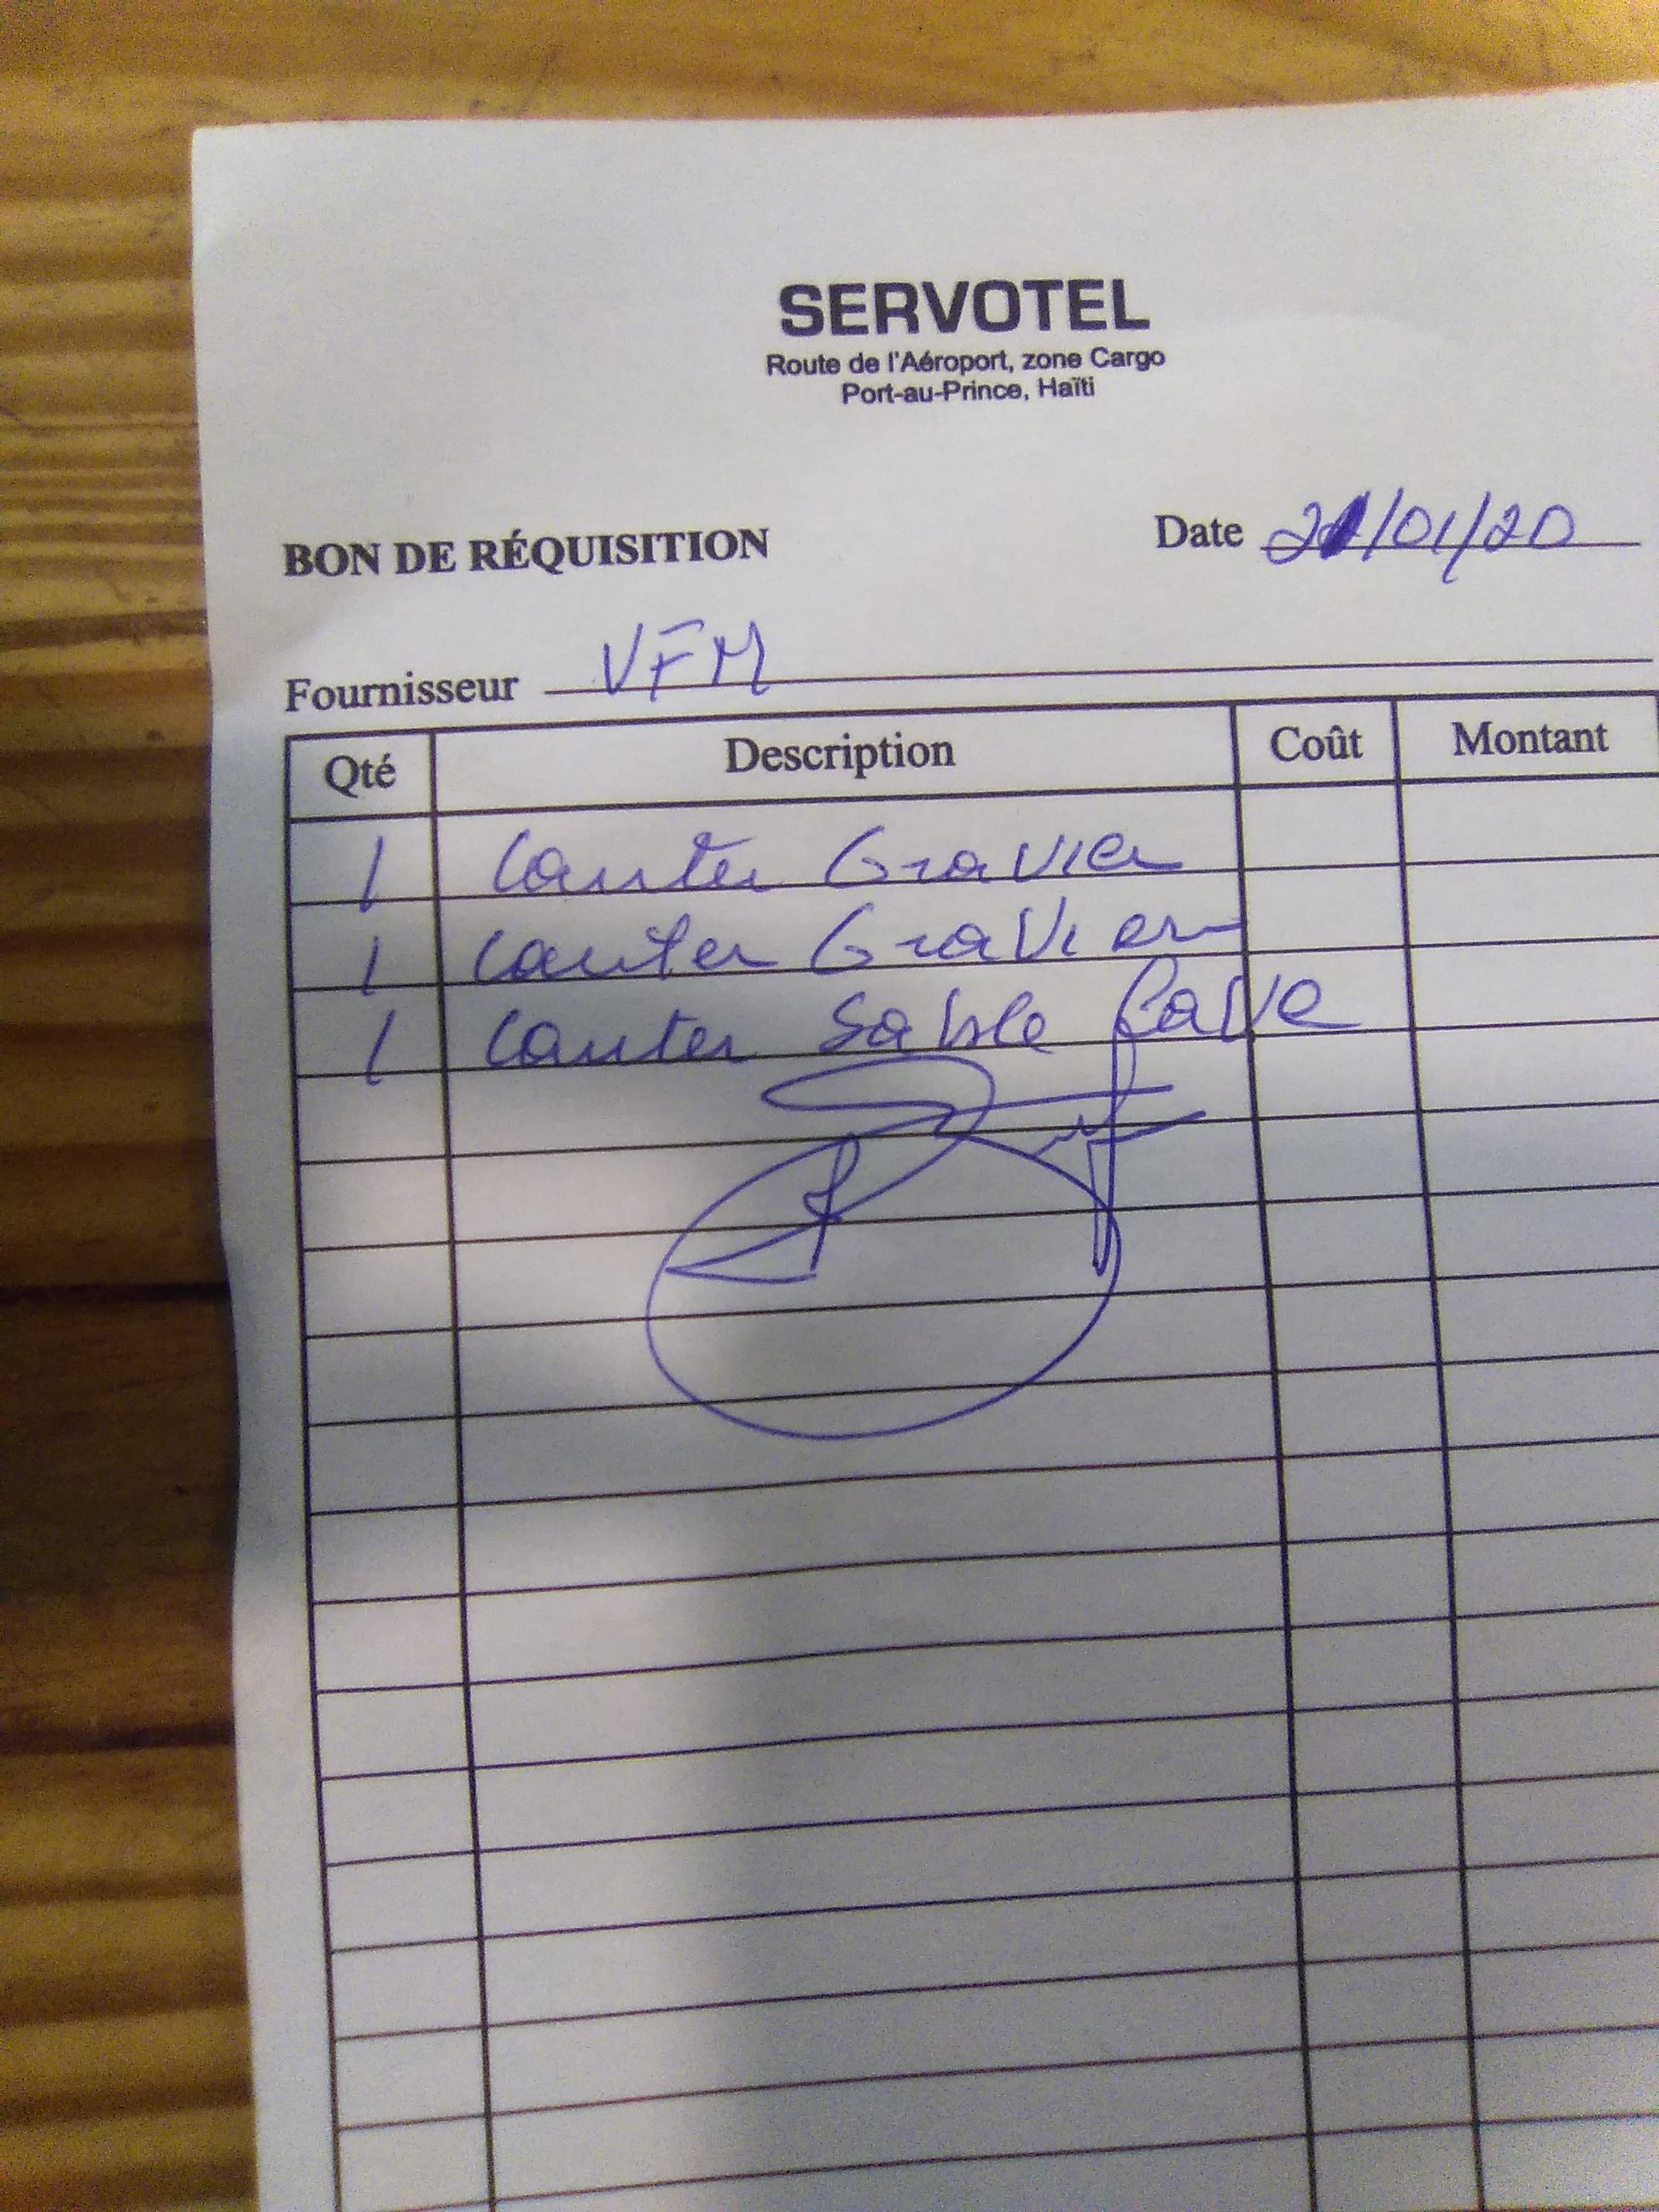 SERVOTEL
Route de l'Aéroport, zone Cargo
Port-au-Prince, Haïti
BON DE RÉQUISITION Date 21/01/20
Fournisseur VFM
Qté Description Coût Montant
1 Canter Gravier
1 Canter Gravier
1 Canter Sable Lavé